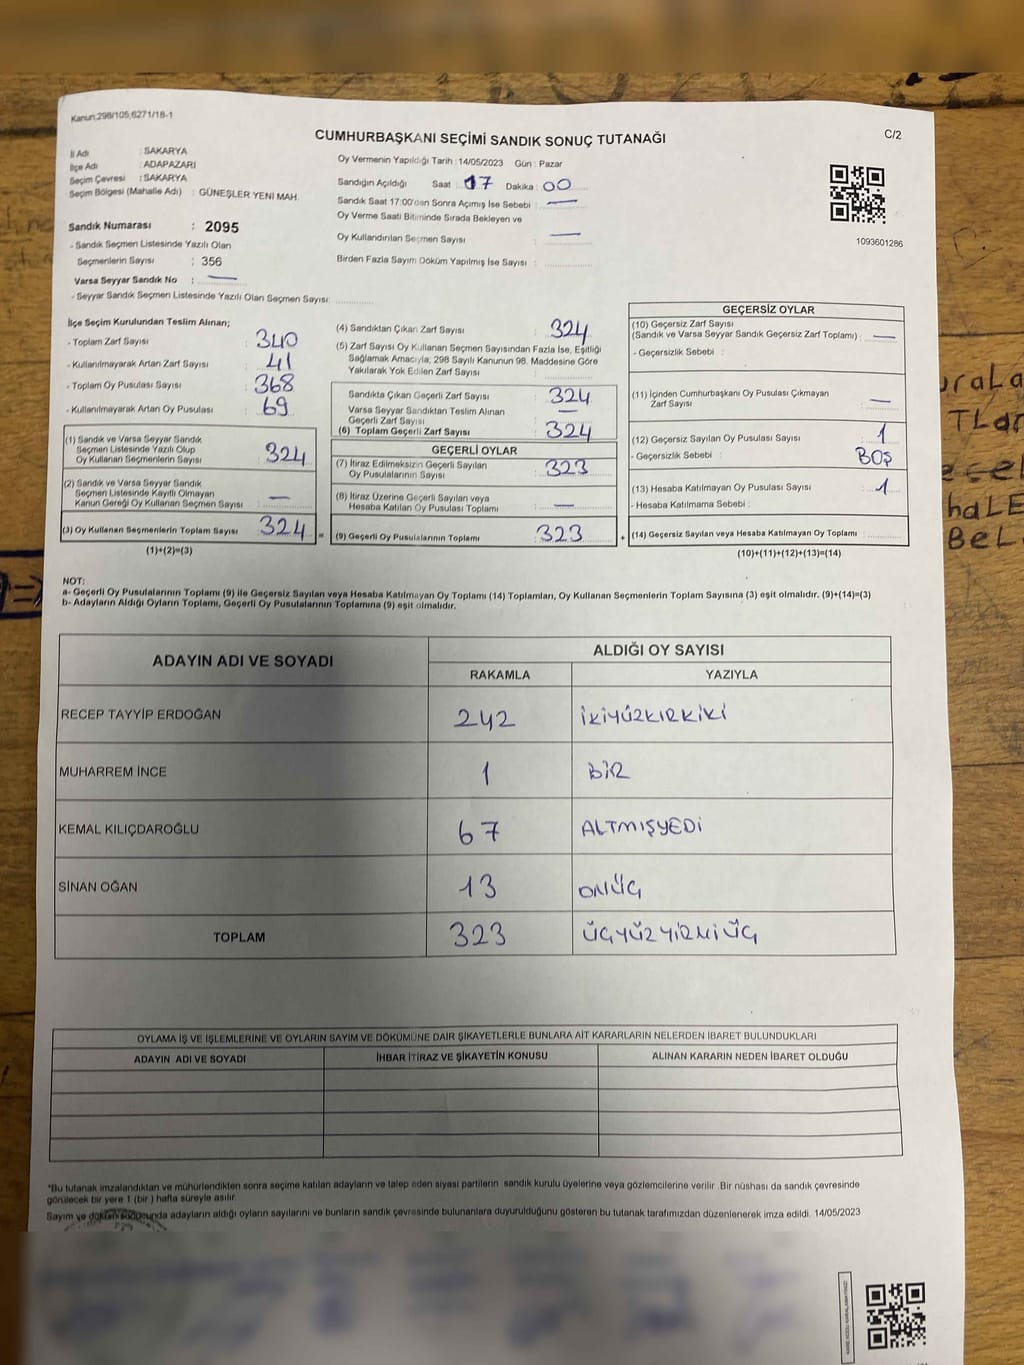 Kanun:298/105;6271/18-1
C/2
CUMHURBAŞKANI SEÇİMİ SANDIK SONUÇ TUTANAĞI
İl Adı : SAKARYA
İlçe Adı : ADAPAZARI
Seçim Çevresi : SAKARYA
Seçim Bölgesi (Mahalle Adı) : GÜNEŞLER YENİ MAH.
Oy Vermenin Yapıldığı Tarih : 14/05/2023 Gün : Pazar
Sandığın Açıldığı Saat : 17 Dakika : 00
Sandık Saat 17:00'den Sonra Açımış İse Sebebi : —
Oy Verme Saati Bitiminde Sırada Bekleyen ve
Oy Kullandırılan Seçmen Sayısı : —
Birden Fazla Sayım Döküm Yapılmış İse Sayısı :
1093601286
Sandık Numarası : 2095
- Sandık Seçmen Listesinde Yazılı Olan
Seçmenlerin Sayısı : 356
Varsa Seyyar Sandık No : —
- Seyyar Sandık Seçmen Listesinde Yazılı Olan Seçmen Sayısı:
İlçe Seçim Kurulundan Teslim Alınan;
- Toplam Zarf Sayısı : 340
- Kullanılmayarak Artan Zarf Sayısı : 41
- Toplam Oy Pusulası Sayısı : 368
- Kullanılmayarak Artan Oy Pusulası : 69
(1) Sandık ve Varsa Seyyar Sandık
Seçmen Listesinde Yazılı Olup
Oy Kullanan Seçmenlerin Sayısı : 324
(2) Sandık ve Varsa Seyyar Sandık
Seçmen Listesinde Kayıtlı Olmayan
Kanun Gereği Oy Kullanan Seçmen Sayısı : —
(3) Oy Kullanan Seçmenlerin Toplam Sayısı : 324
(1)+(2)=(3)
(4) Sandıktan Çıkan Zarf Sayısı : 324
(5) Zarf Sayısı Oy Kullanan Seçmen Sayısından Fazla İse, Eşitliği
Sağlamak Amacıyla; 298 Sayılı Kanunun 98. Maddesine Göre
Yakılarak Yok Edilen Zarf Sayısı :
Sandıkta Çıkan Geçerli Zarf Sayısı : 324
Varsa Seyyar Sandıktan Teslim Alınan
Geçerli Zarf Sayısı : —
(6) Toplam Geçerli Zarf Sayısı : 324
=
GEÇERLİ OYLAR
(7) İtiraz Edilmeksizin Geçerli Sayılan
Oy Pusulalarının Sayısı : 323
(8) İtiraz Üzerine Geçerli Sayılan veya
Hesaba Katılan Oy Pusulası Toplamı : —
(9) Geçerli Oy Pusulalarının Toplamı : 323
+
GEÇERSİZ OYLAR
(10) Geçersiz Zarf Sayısı
(Sandık ve Varsa Seyyar Sandık Geçersiz Zarf Toplamı) : —
- Geçersizlik Sebebi :
(11) İçinden Cumhurbaşkanı Oy Pusulası Çıkmayan
Zarf Sayısı : —
(12) Geçersiz Sayılan Oy Pusulası Sayısı : 1
- Geçersizlik Sebebi : BOŞ
(13) Hesaba Katılmayan Oy Pusulası Sayısı : 1
- Hesaba Katılmama Sebebi :
(14) Geçersiz Sayılan veya Hesaba Katılmayan Oy Toplamı :
(10)+(11)+(12)+(13)=(14)
NOT:
a- Geçerli Oy Pusulalarının Toplamı (9) ile Geçersiz Sayılan veya Hesaba Katılmayan Oy Toplamı (14) Toplamları, Oy Kullanan Seçmenlerin Toplam Sayısına (3) eşit olmalıdır. (9)+(14)=(3)
b- Adayların Aldığı Oyların Toplamı, Geçerli Oy Pusulalarının Toplamına (9) eşit olmalıdır.
ADAYIN ADI VE SOYADI
ALDIĞI OY SAYISI
RAKAMLA YAZIYLA
RECEP TAYYİP ERDOĞAN 242 İKİYÜZKIRKİKİ
MUHARREM İNCE 1 BİR
KEMAL KILIÇDAROĞLU 67 ALTMIŞYEDİ
SİNAN OĞAN 13 ONÜÇ
TOPLAM 323 ÜÇYÜZYİRMİÜÇ
OYLAMA İŞ VE İŞLEMLERİNE VE OYLARIN SAYIM VE DÖKÜMÜNE DAİR ŞİKAYETLERLE BUNLARA AİT KARARLARIN NELERDEN İBARET BULUNDUKLARI
ADAYIN ADI VE SOYADI İHBAR İTİRAZ VE ŞİKAYETİN KONUSU ALINAN KARARIN NEDEN İBARET OLDUĞU
*Bu tutanak imzalandıktan ve mühürlendikten sonra seçime katılan adayların ve talep eden siyasi partilerin sandık kurulu üyelerine veya gözlemcilerine verilir. Bir nüshası da sandık çevresinde
görülecek bir yere 1 (bir) hafta süreyle asılır.
Sayım ve döküm sonucunda adayların aldığı oyların sayılarını ve bunların sandık çevresinde bulunanlara duyurulduğunu gösteren bu tutanak tarafımızdan düzenlenerek imza edildi. 14/05/2023